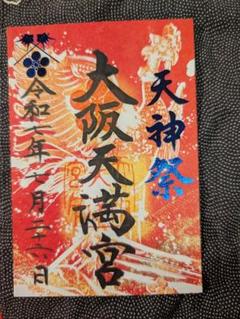 天神祭
大阪天満宮
令和七年七月二十六日